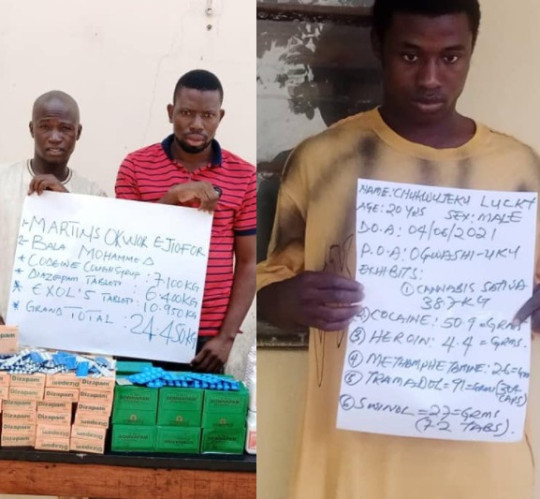 1- MARTINS OKWOR EJIOFOR
2- BALA MOHAMMED
* CODEINE COUGH SYRUP: 7.100KG
* DIAZEPAM TABLETS: 6.400KG
* EXOL-5 TABLETS: 10.950KG
* GRAND TOTAL: 24.450KG
Diazepam
NAME: CHUKWUJEKU LUCKY
AGE: 20 YRS SEX: MALE
D.O.A: 04/06/2021
P.O.A: OGWASHI-UKU
EXHIBITS:
① CANNABIS SATIVA
387KG
② COCAINE: 50.9=GRMS
③ HEROIN: 4.4=GRMS.
④ METHAMPHETAMINE:
⑤ TRAMADOL=91=GRMS
TABS)
⑥ SWINOL=27=GRMS
(72 TABS).